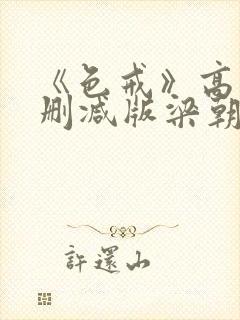 《色戒》高
删减版梁朝
許還山